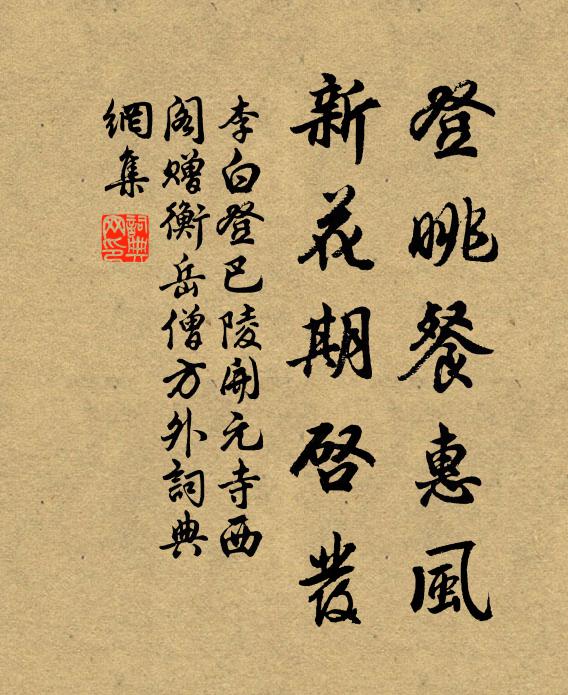 登眺餐惠風
新花期啓發
李白登巴陵開元寺西
閣贈衡岳僧方外詞典
網集
詞典
网印